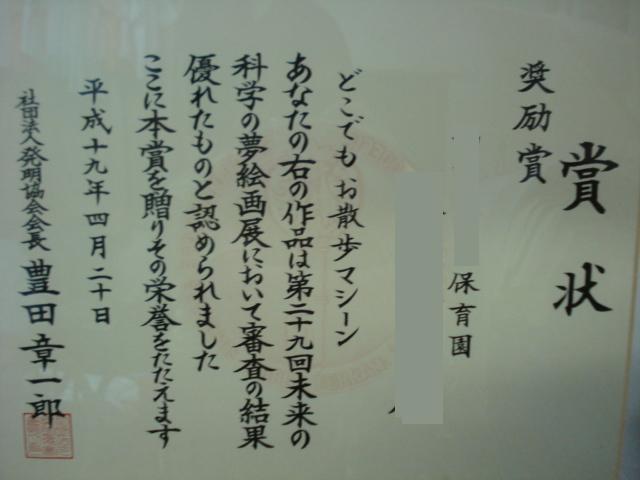 賞状
奨励賞
保育園
どこでもお散歩マシーン
あなたの右の作品は第二十九回未来の
科学の夢絵画展において審査の結果
優れたものと認められました
ここに本賞を贈りその栄誉をたたえます
平成十九年四月二十日
社団法人発明協会会長 豊田章一郎